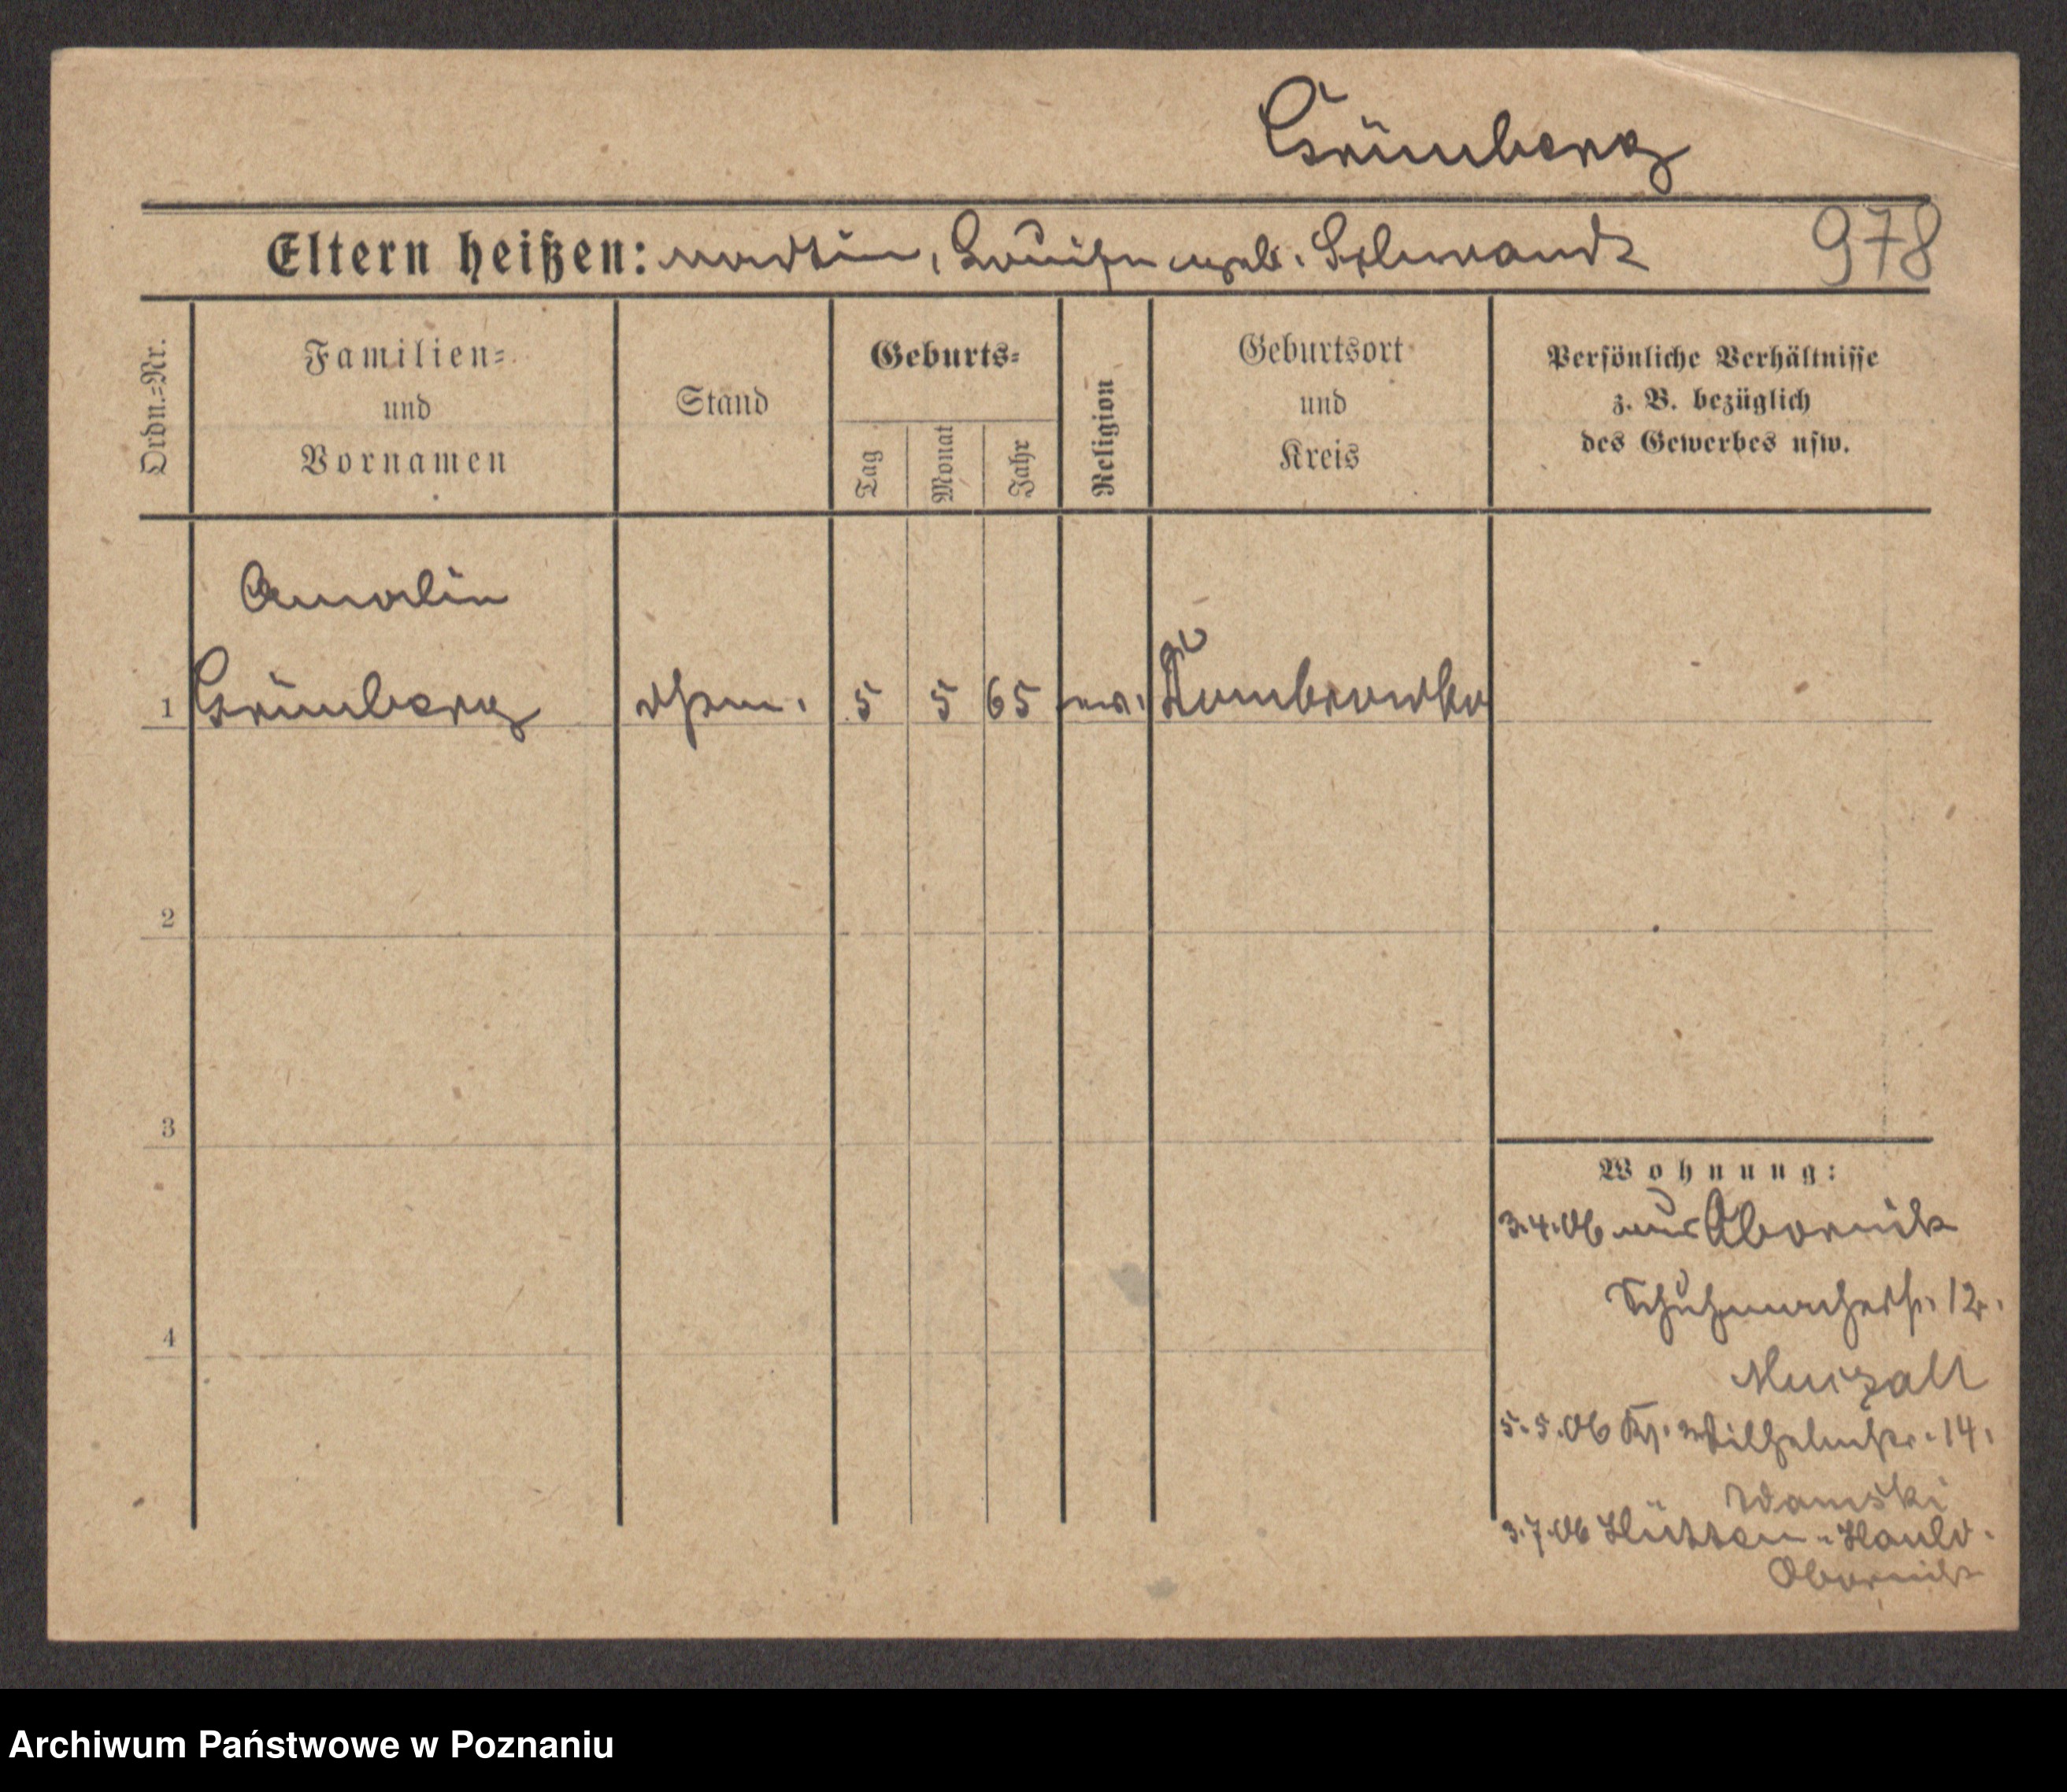 Grünberg
Eltern heißen: Martin, Louise geb. Schwandt 978
Ordn.=Nr.
Familien= und Vornamen
Stand
Geburts=
Tag
Monat
Jahr
Religion
Geburtsort und Kreis
Persönliche Verhältnisse z. B. bezüglich des Gewerbes usw.
Amalie
1 Grünberg 5 5 65 ev. Dombrowka
2
3
4
Wohnung:
3.4.06 aus Obornik
Schuhmacherstr. 12.
5.5.06 Wilhelmstr. 14.
Adamski
3.7.06 Hütten-Hauld.
Obornik
Archiwum Państwowe w Poznaniu